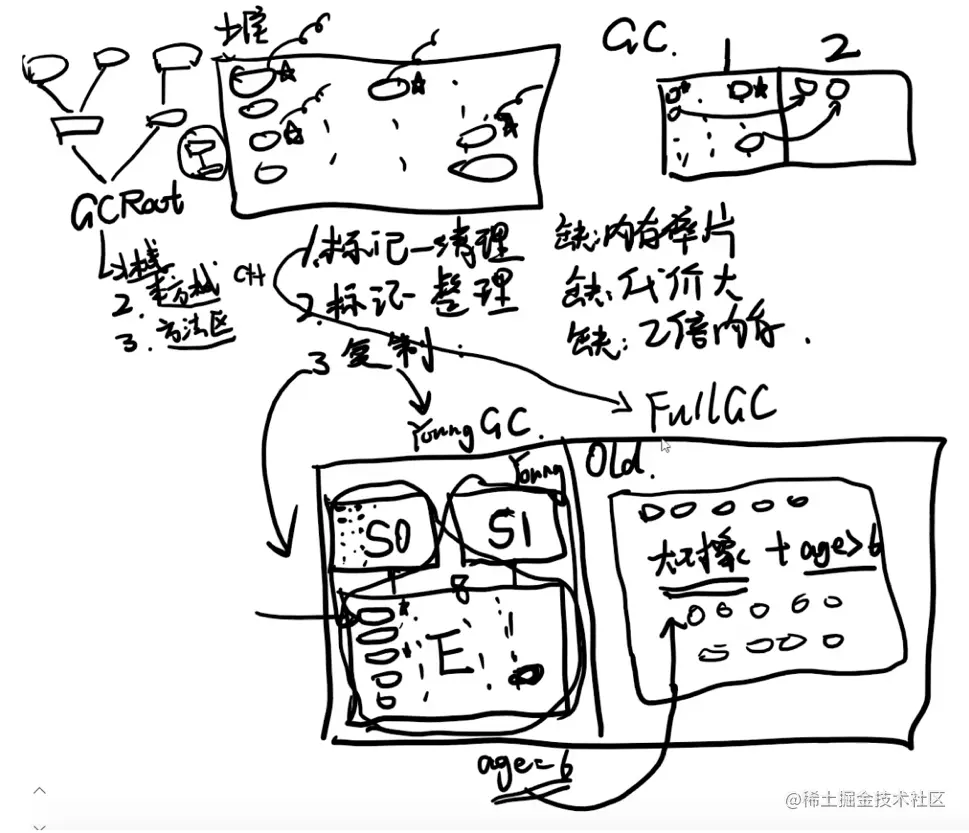 堆
GC.
1 2
GCRoot
1.栈
2.本方栈
3.方法区
1.标记一清理 缺:内存碎片
2.标记一整理 缺:代价大
3 复制 缺:2倍内存.
Young GC.
FullGC
Young
Old.
S0 S1
8
E
大对象 + age>6
age=6
@稀土掘金技术社区